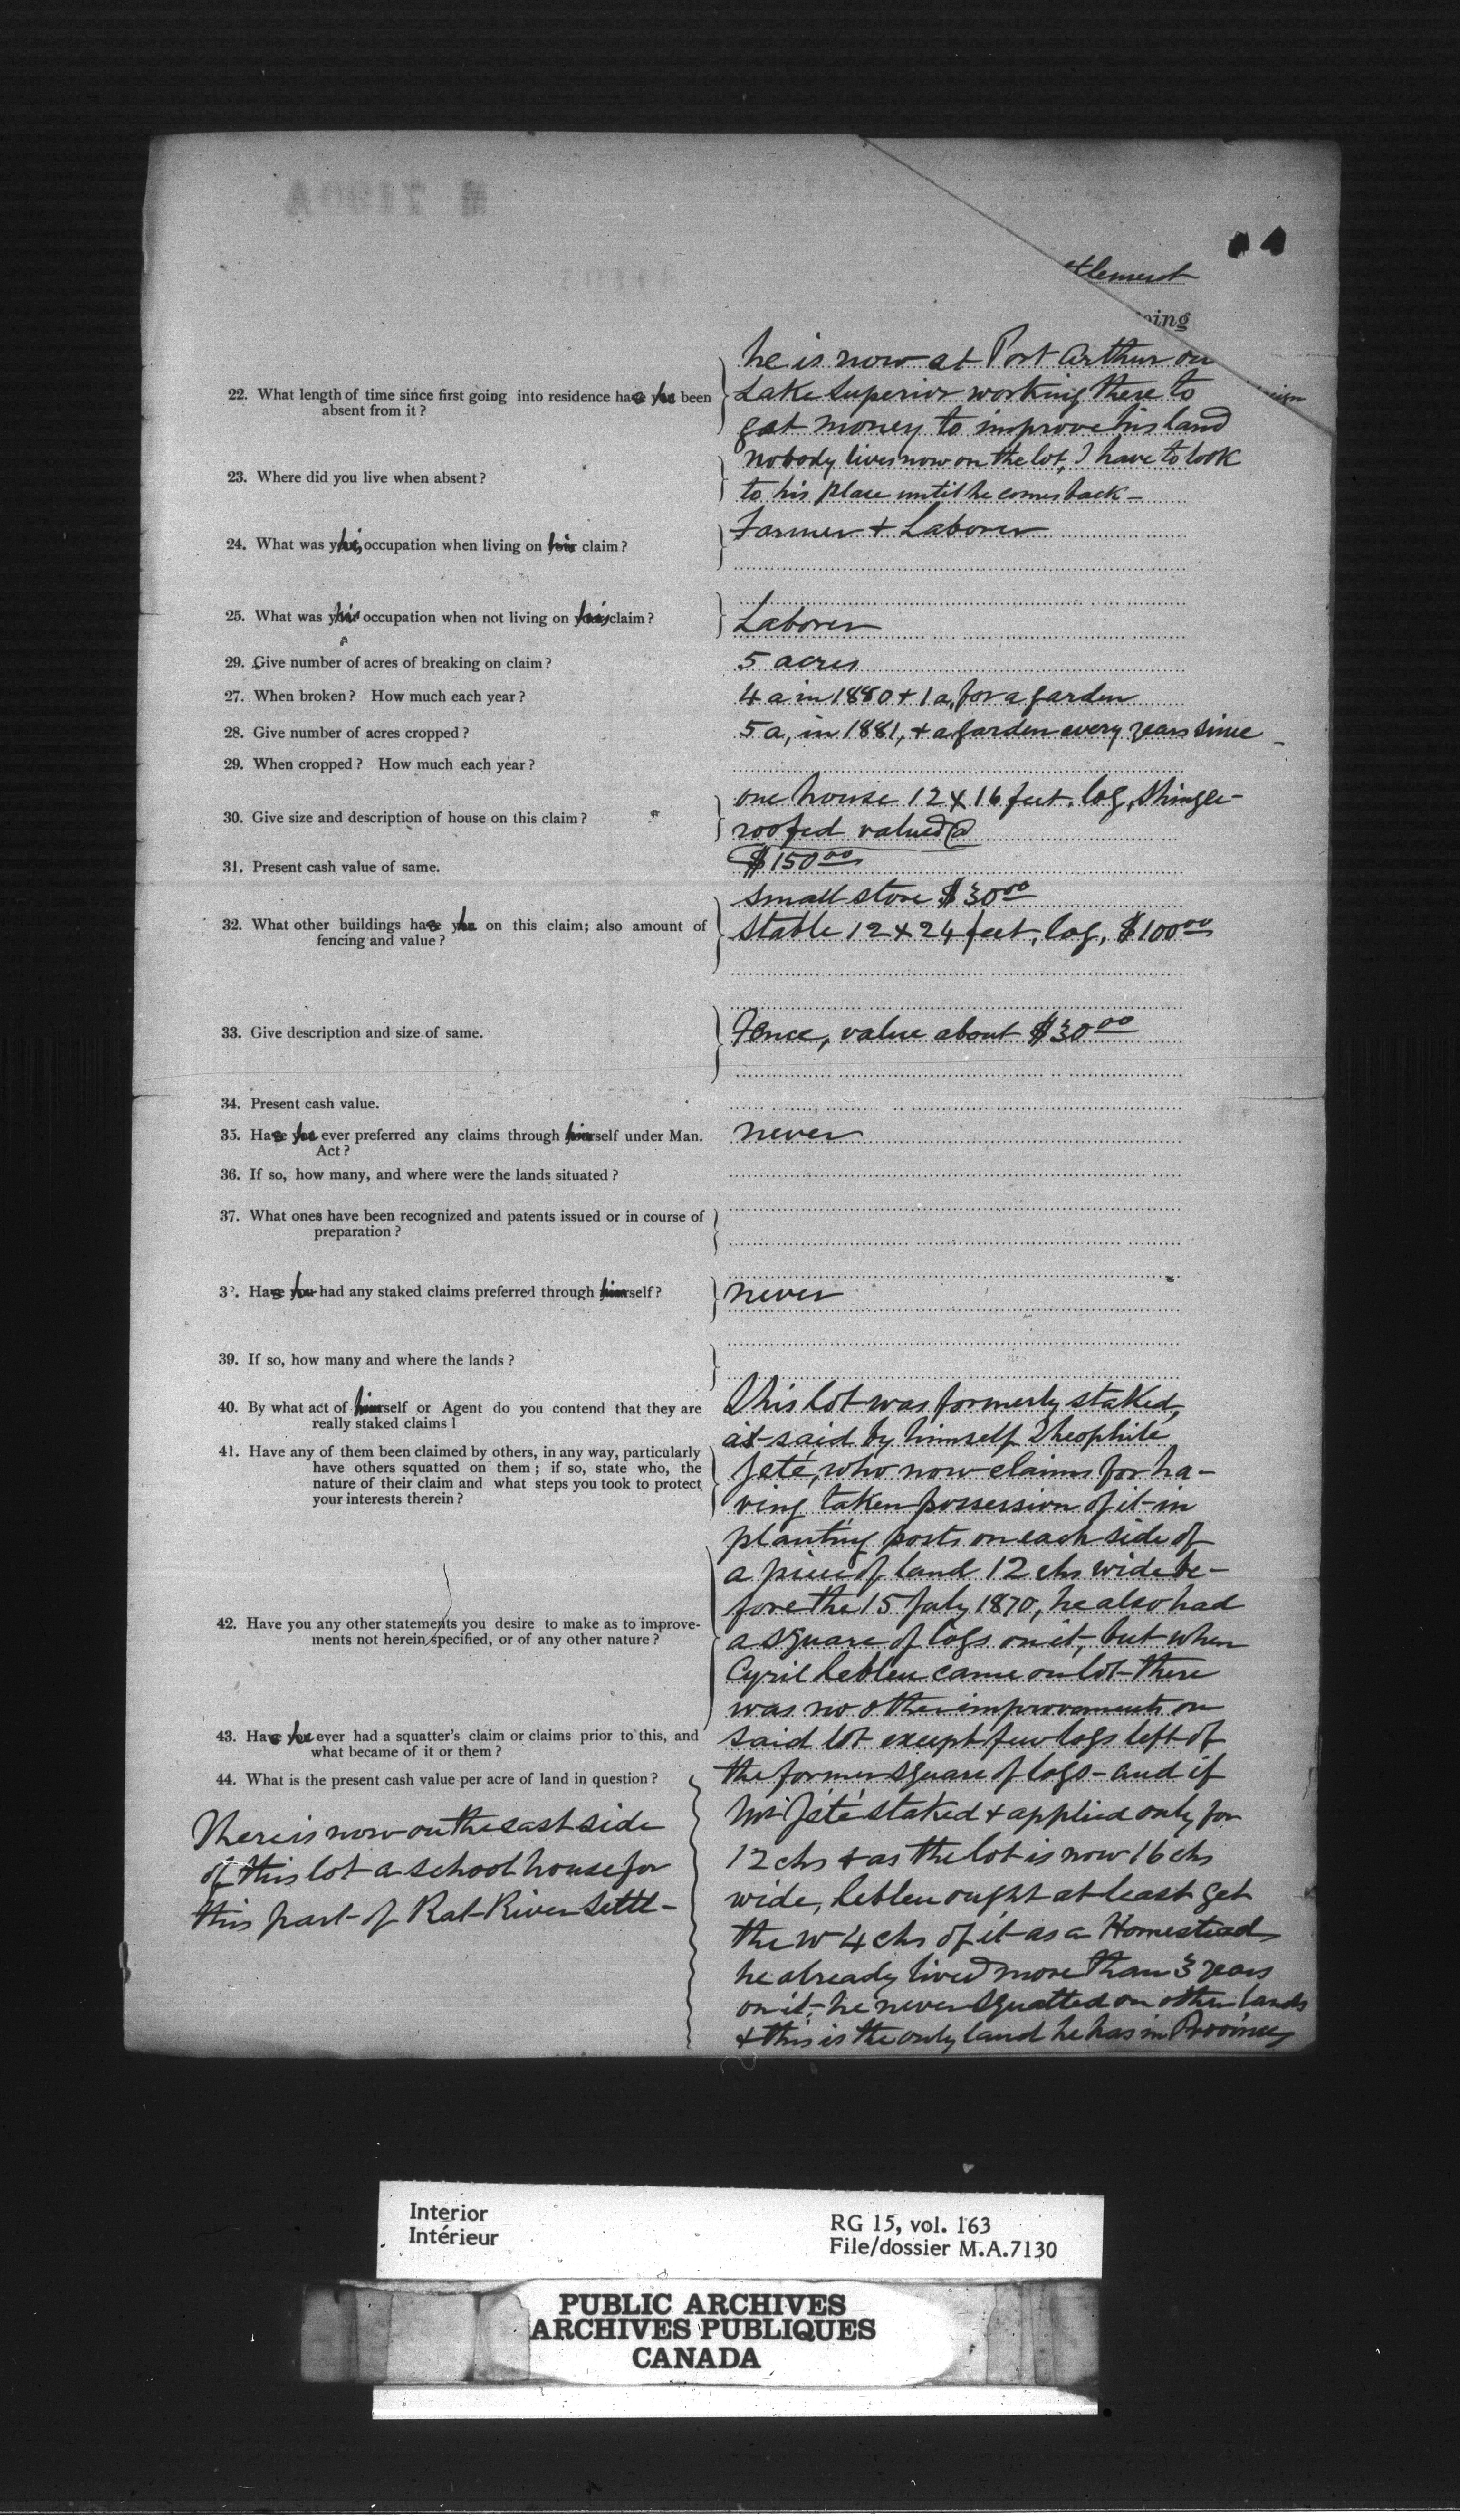 M 7130A
ttlement
oing
he is now at Port Arthur on
22. What length of time since first going into residence has he been
absent from it?
Lake Superior working there to
get money to improve his land
23. Where did you live when absent?
nobody lives now on the lot, I have to look
to his place until he comes back -
24. What was his occupation when living on his claim?
Farmer & Laborer
25. What was his occupation when not living on his claim?
Laborer
29. Give number of acres of breaking on claim?
5 acres
27. When broken? How much each year?
4 a in 1880 & 1 a, for a garden
28. Give number of acres cropped?
5 a, in 1881, & a garden every years since -
29. When cropped? How much each year?
30. Give size and description of house on this claim?
one house 12 x 16 feet, log, shingle-
roofed valued @
31. Present cash value of same.
$150.00
small store $30.00
32. What other buildings has he on this claim; also amount of
fencing and value?
Stable 12 x 24 feet, log, $100.00
33. Give description and size of same.
Fence, value about $30.00
34. Present cash value.
35. Has he ever preferred any claims through himself under Man.
Act?
never
36. If so, how many, and where were the lands situated?
37. What ones have been recognized and patents issued or in course of
preparation?
38. Has he had any staked claims preferred through himself?
never
39. If so, how many and where the lands?
40. By what act of himself or Agent do you contend that they are
really staked claims?
41. Have any of them been claimed by others, in any way, particularly
have others squatted on them; if so, state who, the
nature of their claim and what steps you took to protect
your interests therein?
42. Have you any other statements you desire to make as to improve-
ments not herein specified, or of any other nature?
43. Has he ever had a squatter's claim or claims prior to this, and
what became of it or them?
44. What is the present cash value per acre of land in question?
This lot was formerly staked,
as said by himself Theophile
Jeté, who now claims for ha-
ving taken possession of it in
planting posts on each side of
a piece of land 12 chs wide be-
fore the 15 July 1870, he also had
a square of logs on it, but when
Cyril Lebleu came on lot there
was no other improvements on
said lot except few logs left of
the former square of logs - and if
Mr Jeté staked & applied only for
12 chs & as the lot is now 16 chs
wide, Lebleu ought at least get
the W 4 chs of it as a Homestead
he already lived more than 3 years
on it, - he never squatted on other lands
& this is the only land he has in Province
There is now on the east side
of this lot a school house for
this part of Rat River Settl -
Interior
Intérieur
RG 15, vol. 163
File/dossier M.A.7130
PUBLIC ARCHIVES
ARCHIVES PUBLIQUES
CANADA